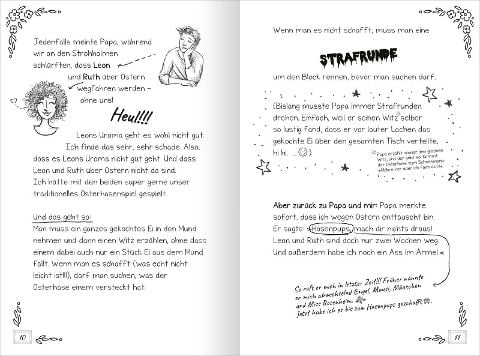 Jedenfalls meinte Papa, während
wir an den Strohhalmen
schlürften, dass Leon
und Ruth über Ostern
wegfahren werden –
ohne uns!
Heul!!!!
Leons Uroma geht es wohl nicht gut.
Ich finde das sehr, sehr schade. Also,
dass es Leons Uroma nicht gut geht. Und dass
Leon und Ruth über Ostern nicht da sind.
Ich hätte mit den beiden super gerne unser
traditionelles Osterhasenspiel gespielt.
Und das geht so:
Man muss ein ganzes gekochtes Ei in den Mund
nehmen und dann einen Witz erzählen, ohne dass
einem dabei auch nur ein Stück Ei aus dem Mund
fällt. Wenn man es schafft (was echt nicht
leicht ist!!!), darf man suchen, was der
Osterhase einem versteckt hat.
10
Wenn man es nicht schafft, muss man eine
STRAFRUNDE
um den Block rennen, bevor man suchen darf.
(Bislang musste Papa immer Strafrunden
drehen. Einfach, weil er seinen Witz selber
so lustig fand, dass er vor lauter Lachen das
gekochte Ei über den gesamten Tisch verteilte,
hi hi ...)
Aber zurück zu Papa und mir: Papa merkte
sofort, dass ich wegen Ostern enttäuscht bin.
Er sagte: »Hasenpups, mach dir nichts draus!
Leon und Ruth sind doch nur zwei Wochen weg.
Und außerdem habe ich noch ein Ass im Ärmel.«
So ruft er mich in letzter Zeit!!! Früher nannte
er mich abwechselnd Engel, Mausi,
und Miss Rosenheim.
Jetzt habe ich es bis zum Hasenpups geschafft
11